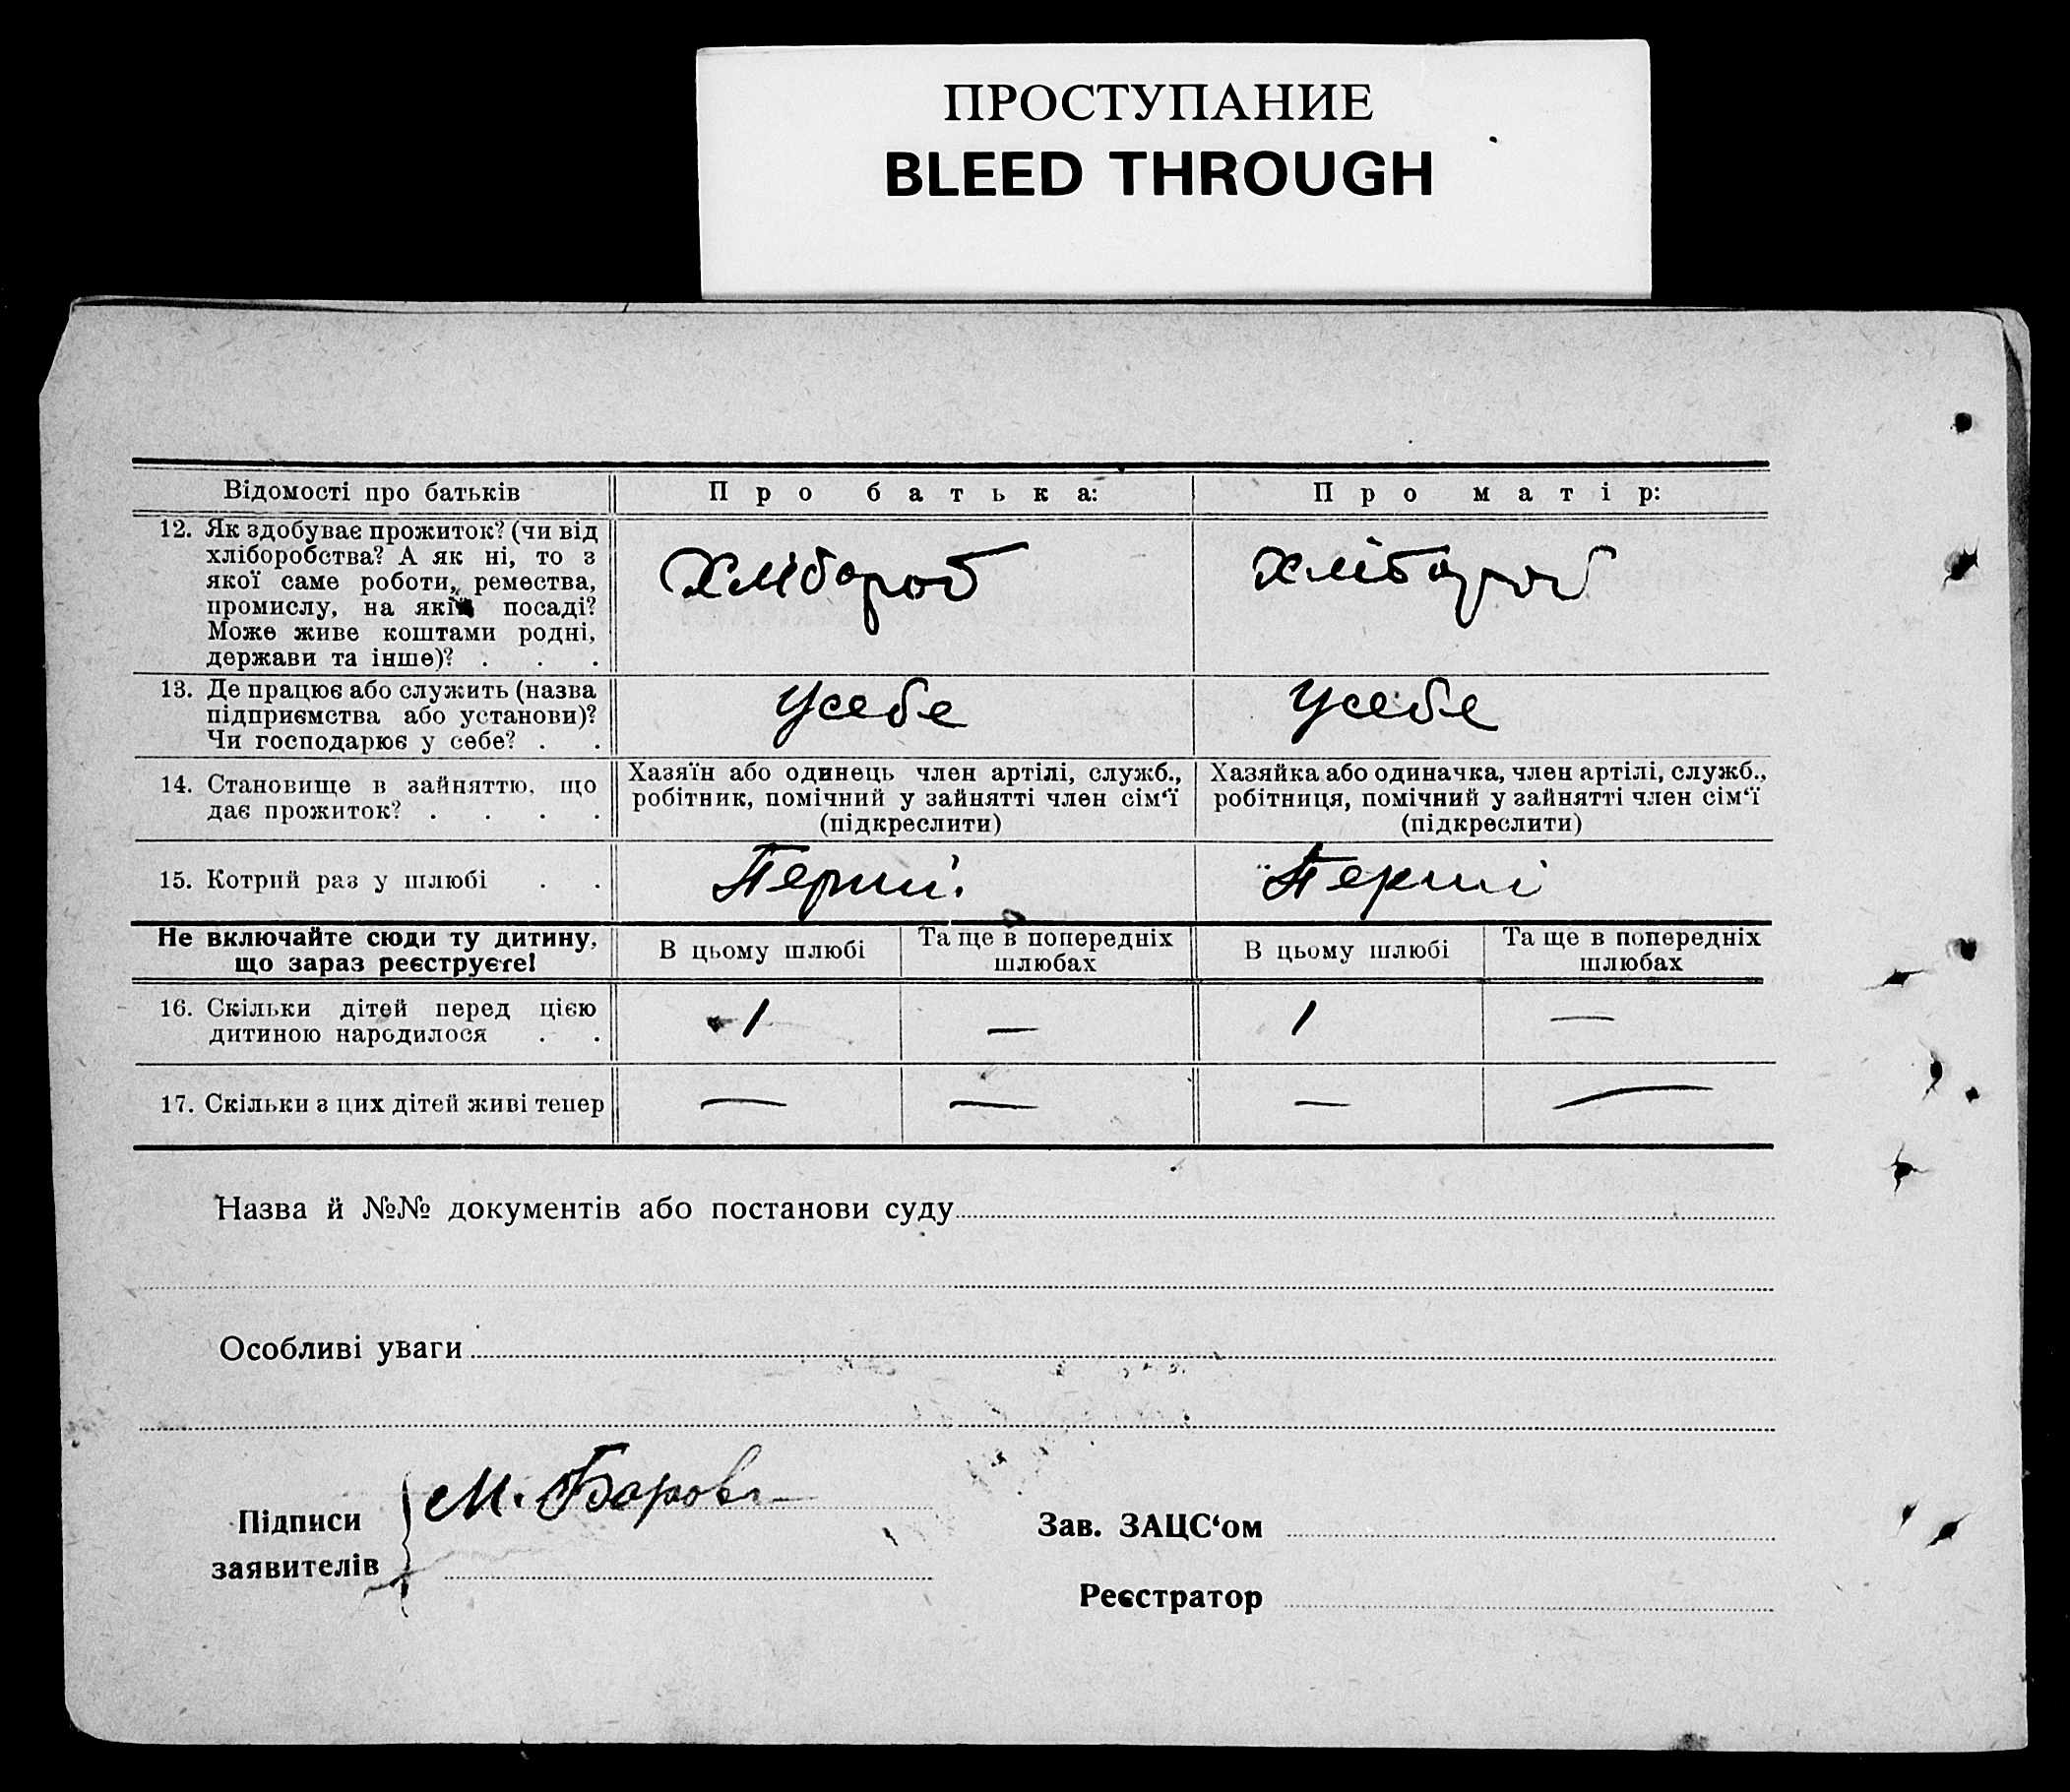 ПРОСТУПАНИЕ
BLEED THROUGH
Відомості про батьків
Про батька:
Про матір:
12. Як здобуває прожиток? (чи від
хліборобства? А як ні, то з
якої саме роботи, ремества,
промислу, на якій посаді?
Може живе коштами родні,
держави та інше)? . . .
Хлібороб
Хлібороб
13. Де працює або служить (назва
підприємства або установи)?
Чи господарює у себе? . .
Усебе
Усебе
14. Становище в зайняттю, що
дає прожиток? . . . .
Хазяїн або одинець член артілі, служб.,
робітник, помічний у зайнятті член сім‘ї
(підкреслити)
Хазяйка або одиначка, член артілі, служб.,
робітниця, помічний у зайнятті член сім‘ї
(підкреслити)
15. Котрий раз у шлюбі . .
Перший
Перши
Не включайте сюди ту дитину,
що зараз реєструєте!
В цьому шлюбі
Та ще в попередніх
шлюбах
В цьому шлюбі
Та ще в попередніх
шлюбах
16. Скільки дітей перед цією
дитиною народилося . .
1
—
1
—
17. Скільки з цих дітей живі тепер
—
—
—
—
Назва й №№ документів або постанови суду
Особливі уваги
Підписи
заявителів
М.
Зав. ЗАЦС‘ом
Реєстратор